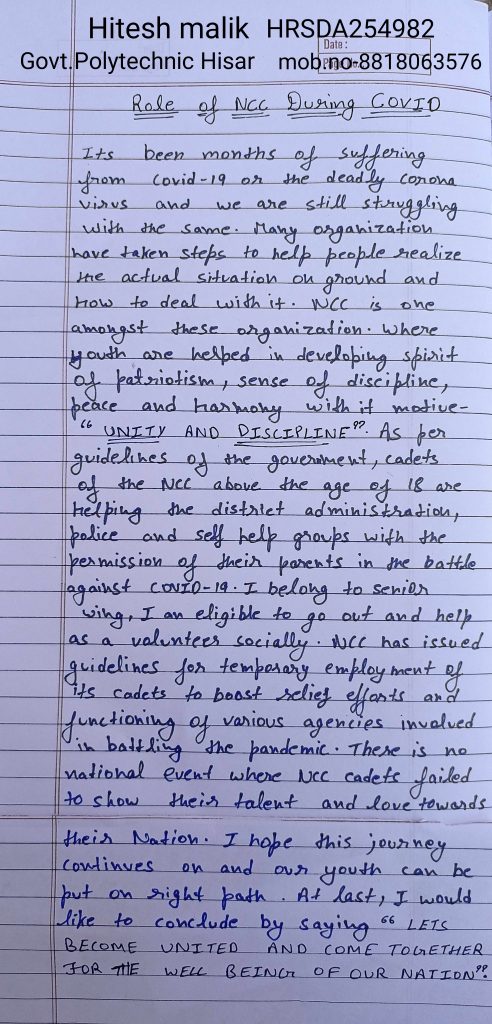 Hitesh malik HRSDA254982
Date :
Govt.Polytechnic Hisar mob.no-8818063576
Role of NCC During COVID
Its been months of suffering
from Covid-19 or the deadly corona
virus and we are still struggling
with the same. Many organization
have taken steps to help people realize
the actual situation on ground and
How to deal with it. NCC is one
amongst these organization. Where
youth are helped in developing spirit
of patriotism, sense of discipline,
peace and harmony with it motive-
“UNITY AND DISCIPLINE”. As per
guidelines of the government, cadets
of the NCC above the age of 18 are
Helping the district administration,
police and self help groups with the
permission of their parents in the battle
against COVID-19. I belong to senior
wing, I an eligible to go out and help
as a volunteer socially. NCC has issued
guidelines for temporary employment of
its cadets to boost relief efforts and
functioning of various agencies involved
in battling the pandemic. There is no
national event where NCC cadets failed
to show their talent and love towards
their Nation. I hope this journey
continues on and our youth can be
put on right path. At last, I would
like to conclude by saying “LETS
BECOME UNITED AND COME TOGETHER
FOR THE WELL BEING OF OUR NATION”.